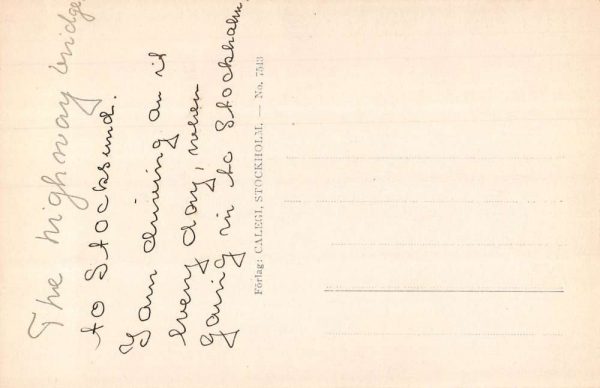 The highway bridge
to Stocksund.
I am driving on it
every day, when
going in to Stockholm.
Förlag: CALEGI, STOCKHOLM. — No. 7513